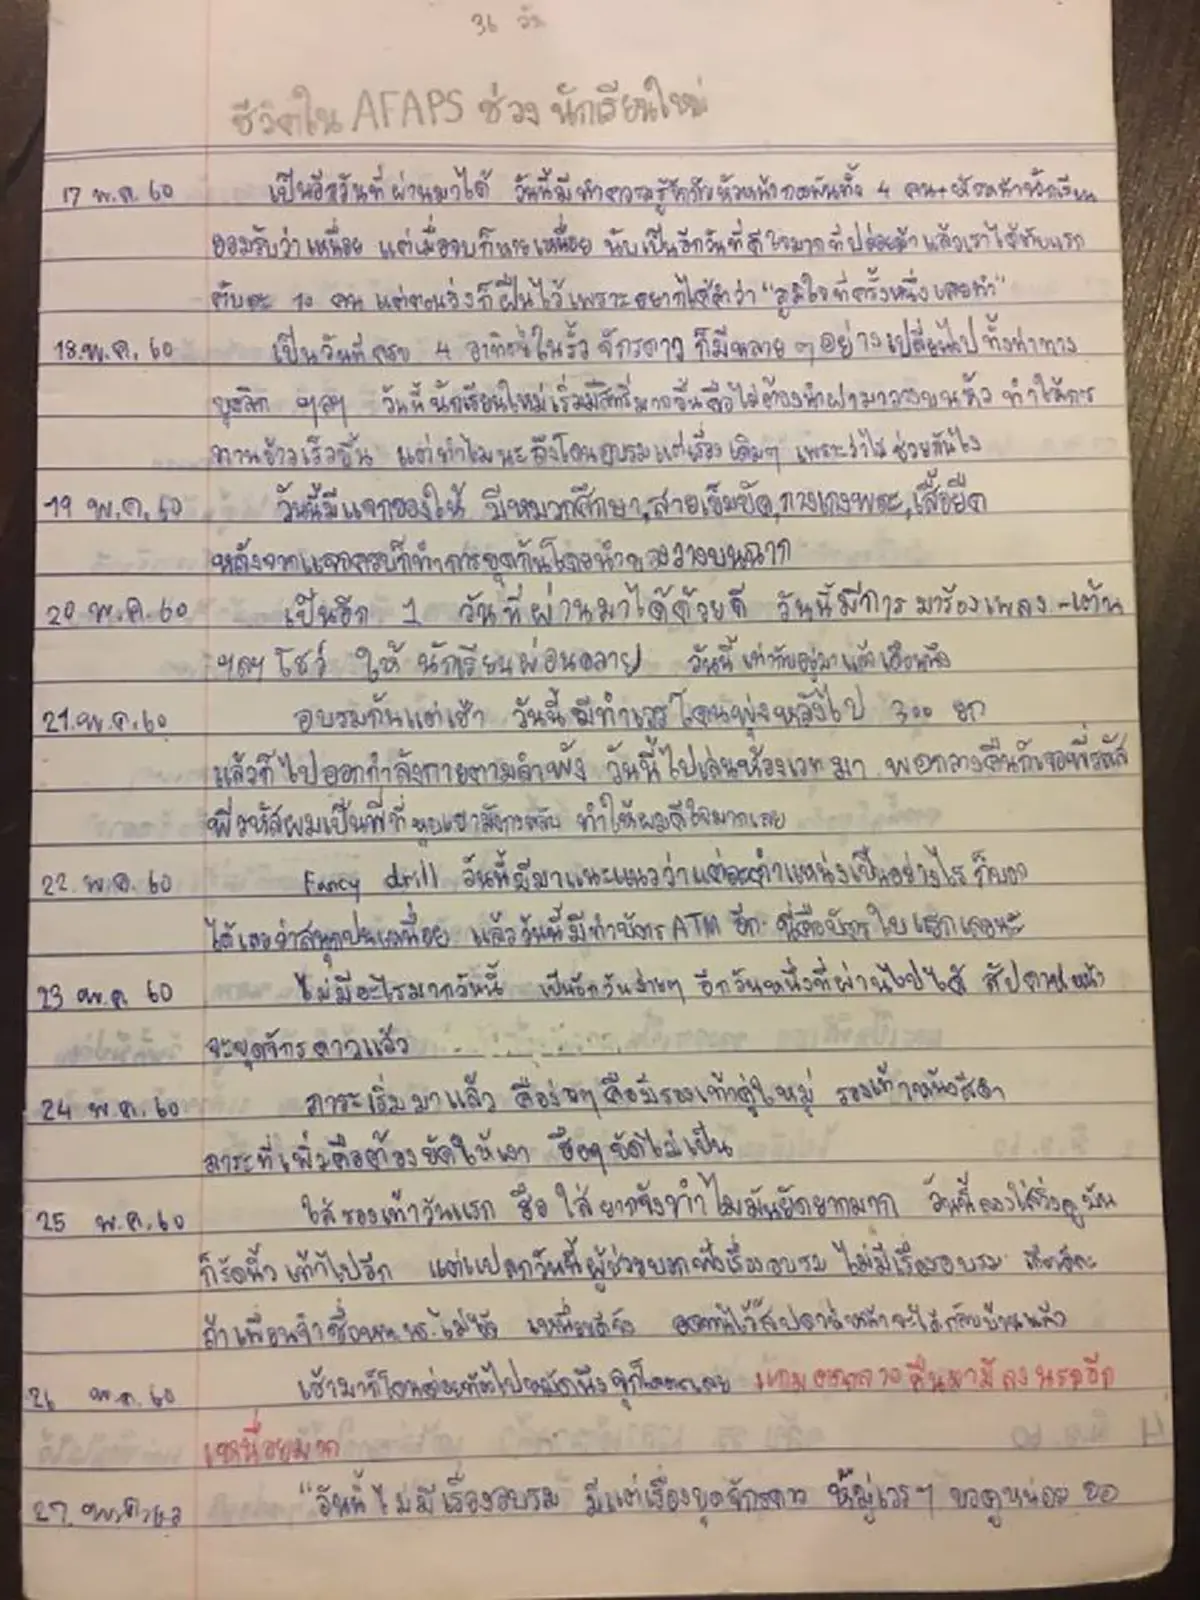 36 วัน
ชีวิตใน AFAPS ช่วง นักเรียนใหม่
17 พ.ค. 60 เป็นอีกวันที่ผ่านมาได้ วันนี้มี ทำความรู้จักกับหัวหน้ากองพันทั้ง 4 คน+
ยอมรับว่าเหนื่อย แต่เมื่อจบก็หายเหนื่อย นับเป็นอีกวันที่ดีใจมากที่ แล้วเราได้ทับแรก
10 คน ก็ฝืนไว้เพราะอยากได้คำว่า "ภูมิใจที่ครั้งหนึ่งเคยทำ"
18.พ.ค. 60 เป็นวันที่ครบ 4 อาทิตย์ในรั้ว จักรดาว ก็มีหลาย ๆ อย่างเปลี่ยนไป ทั้งท่าทาง
บุคลิก ฯลฯ วันนี้นักเรียนใหม่เริ่มมีสิทธิ์มากขึ้นคือไม่ต้องนำฝามาวางบนหัว ทำให้การ
ทานข้าวเร็วขึ้น แต่ทำไมนะถึงโดนอบรมแต่เรื่องเดิมๆ
19 พ.ค. 60 วันนี้มีแจกของให้ มีหมวกศึกษา,สายเข็มขัด,กางเกงพละ,เสื้อยืด
หลังจากแจกครบก็ทำการ
20 พ.ค. 60 เป็นอีก 1 วันที่ผ่านมาได้ด้วยดี วันนี้มีการ มาร้องเพลง -เต้น
ฯลฯ โชว์ ให้ นักเรียนผ่อนคลาย วันนี้ เท่ากับอยู่มาแล้วเดือนนึง
21.พ.ค.60 อบรมกันแต่เช้า วันนี้มีทำเวร โดนพุ่งหลังไป 300 ยก
แล้วก็ไปออกกำลังกายตามลำพัง วันนี้ไปเล่นห้องเวทมา พอกลางคืนก็เจอพี่รหัส
พี่รหัสผมเป็นพี่ที่ ทำให้ผมดีใจมากเลย
22 พ.ค. 60 Fancy drill วันนี้มีมาแนะแนวว่าแต่ละตำแหน่งเป็นอย่างไร ก็บอก
ได้เลยว่าสนุกปนเหนื่อย แล้ววันนี้มีทำบัตร ATM อีก นี่คือบัตรใบแรกเลยนะ
23 พ.ค 60 ไม่มีอะไรมากวันนี้ เป็นอีกวันง่ายๆ อีกวันหนึ่งที่ผ่านไปได้ สัปดาห์หน้า
จะขุดจักรดาวแล้ว
24 พ.ค. 60 ภาระเริ่มมาแล้ว คือง่ายๆ คือมีรองเท้าคู่ใหม่ รองเท้าหนังสีดำ
ภาระที่เพิ่มคือต้องขัดให้เงา ซื่อๆขัดไม่เป็น
25 พ.ค.60 ใส่รองเท้าวันแรก ซื่อ ใส่ยากจังทำไมมันขัดยากมาก วันนี้ลองใส่วิ่งดู
ก็รัดนิ้ว เท้าไปอีก แต่แปลกวันนี้ผู้ช่วยบอก เรื่องอบรม ไม่มีเรื่องอบรม
ถ้าเพื่อนจำชื่อ ไม่ได้ อดทนไว้สัปดาห์หน้าจะได้กลับบ้านแล้ว
26 พ.ค. 60 เช้ามาก็โดน แถม ตอนกลางคืนมามีลงนรกอีก
เหนื่อยมาก
27. พ.ค.60 "วันนี้ไม่มีเรื่องอบรม มีแต่เรื่องขุดจักรดาว